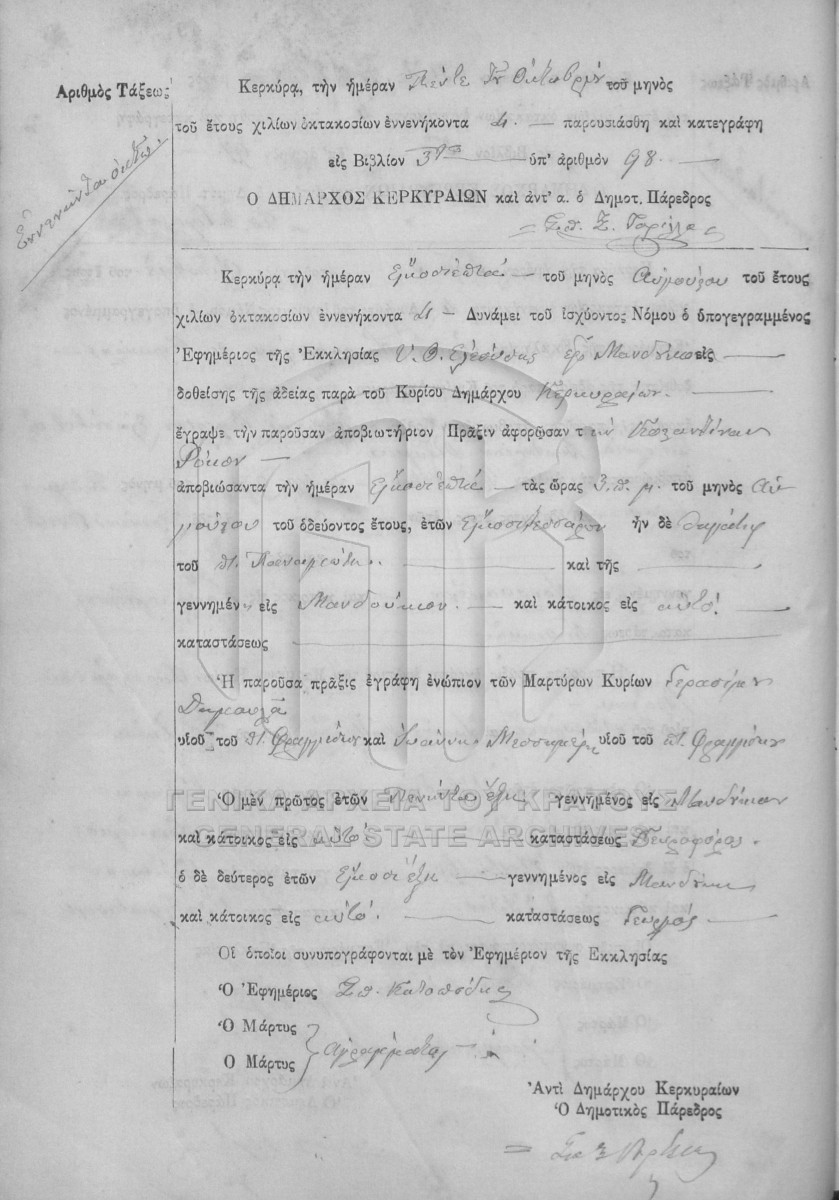 Ἀριθμὸς Τάξεως
Ἐννενῆντα ὀκτώ
Κερκύρᾳ, τὴν ἡμέραν Πέντε τοῦ μηνὸς
τοῦ ἔτους χιλίων ὀκτακοσίων ἐννενήκοντα 4. παρουσιάσθη καὶ κατεγράφη
εἰς Βιβλίον 3ον ὑπ' ἀριθμὸν 98.
Ο ΔΗΜΑΡΧΟΣ ΚΕΡΚΥΡΑΙΩΝ καὶ ἀντ' α. ὁ Δημοτ. Πάρεδρος
Σπ. Ξ.
Κερκύρᾳ τὴν ἡμέραν εἴκοσι ἑπτά τοῦ μηνὸς Αὐγούστου τοῦ ἔτους
χιλίων ὀκτακοσίων ἐννενήκοντα 4 Δυνάμει τοῦ ἰσχύοντος Νόμου ὁ ὑπογεγραμμένος
Ἐφημέριος τῆς Ἐκκλησίας Υ. Θ. Ἐλεούσης ἐν Μανδουκίῳ εἰς
δοθείσης τῆς ἀδείας παρὰ τοῦ Κυρίου Δημάρχου Κερκυραίων.
ἔγραψε τὴν παροῦσαν ἀποβιωτήριον Πρᾶξιν ἀφορῶσαν τὴν
ἀποβιώσαντα τὴν ἡμέραν εἴκοσι ἑπτά τὰς ὥρας 3. π. μ. τοῦ μηνὸς Αὐ
γούστου τοῦ ὁδεύοντος ἔτους, ἐτῶν εἴκοσι τεσσάρων ἦν δὲ θυγάτηρ
τοῦ π. Παναγιώτη. καὶ τῆς
γεννημένη εἰς Μανδούκιον. καὶ κάτοικος εἰς αὐτό.
καταστάσεως
Ἡ παροῦσα πρᾶξις ἐγράφη ἐνώπιον τῶν Μαρτύρων Κυρίων Γερασίμου
υἱοῦ τοῦ π. καὶ Ἰωάννη υἱοῦ τοῦ π.
ΓΕΝΙΚΑ ΑΡΧΕΙΑ ΤΟΥ ΚΡΑΤΟΥΣ
Ὁ μὲν πρῶτος ἐτῶν Πενῆντα ἕξι γεννημένος εἰς Μανδούκιον
GENERAL STATE ARCHIVES
καὶ κάτοικος εἰς αὐτό καταστάσεως
ὁ δὲ δεύτερος ἐτῶν εἴκοσι ἕξι γεννημένος εἰς Μανδούκι
καὶ κάτοικος εἰς αὐτό. καταστάσεως Γεωργός
Οἱ ὁποῖοι συνυπογράφονται μὲ τὸν Ἐφημέριον τῆς Ἐκκλησίας
Ὁ Ἐφημέριος Σπ.
Ὁ Μάρτυς
Ο Μάρτυς ἀγράμματοι
Ἀντὶ Δημάρχου Κερκυραίων
Ὁ Δημοτικὸς Πάρεδρος